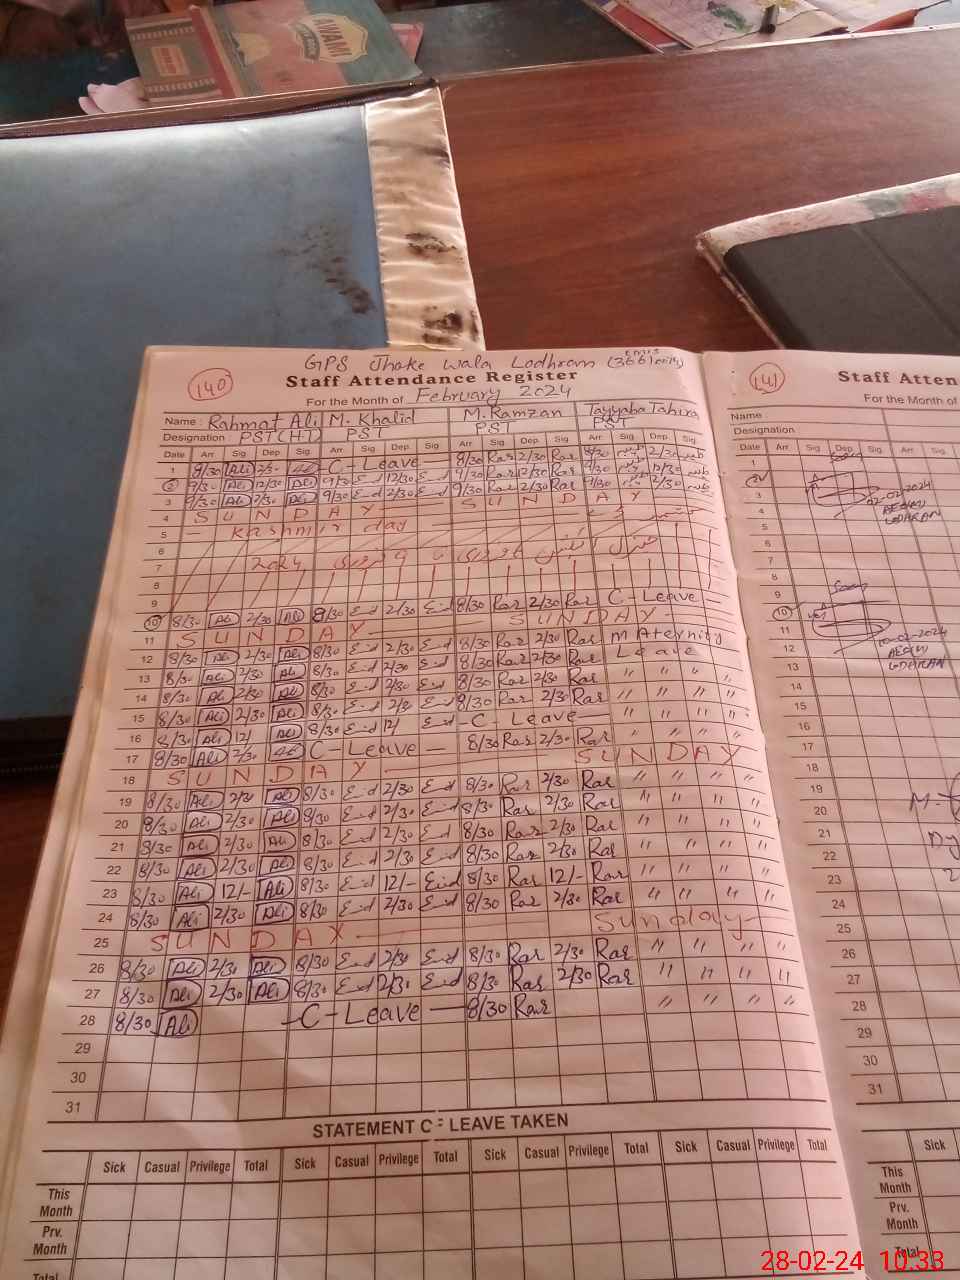 AWAMI
GPS Jhoke Wala Lodhran
EMIS
140
Staff Attendance Register
For the Month of February 2024
Name : Rahmat Ali M. Khalid M. Ramzan Tayyaba Tahira
Designation : PST (HT) PST PST PST
Date Arr Sig Dep. Sig Arr Sig Dep. Sig. Arr Sig Dep. Sig. Arr Sig Dep. Sig.
1 9/30 Ali C - Leave 8/30 Rar 2/30 Rar 8/30 2/30
2 9/30 Ali 12/30 Ali 9/30 Eid 12/30 Eid 9/30 Rar 12/30 Rar 9/30 12/30
3 9/30 Ali 2/30 Ali 9/30 Eid 2/30 Eid 9/30 Rar 2/30 Rar 9/30 2/30
4 S U N D A Y S U N D A Y
5 Kashmir day
6
7 2024
8
9
10 8/30 Ali 2/30 Ali 8/30 Eid 2/30 Eid 8/30 Rar 2/30 Rar C - Leave
11 S U N D A Y S U N D A Y
12 8/30 Ali 2/30 Ali 8/30 Eid 2/30 Eid 8/30 Rar 2/30 Rar MAternity
13 8/30 Ali 2/30 Ali 8/30 Eid 2/30 Eid 8/30 Rar 2/30 Rar Leave
14 8/30 Ali 2/30 Ali 8/30 Eid 2/30 Eid 8/30 Rar 2/30 Rar " " " "
15 8/30 Ali 2/30 Ali 8/30 Eid 8/30 Rar 2/30 Rar " " " "
16 8/30 Ali 12/ Ali 8/30 Eid 12/ Eid C - Leave " " " "
17 8/30 Ali 2/30 C - Leave 8/30 Rar 2/30 Rar " " " "
18 S U N D A Y S U N D A Y
19 8/30 Ali 2/30 Ali 8/30 Eid 2/30 Eid 8/30 Rar 2/30 Rar " " " "
20 8/30 Ali 2/30 Ali 8/30 Eid 2/30 Eid 8/30 Rar 2/30 Rar " " " "
21 8/30 Ali 2/30 Ali 8/30 Eid 2/30 Eid 8/30 Rar 2/30 Rar " " " "
22 8/30 Ali 2/30 Ali 8/30 Eid 2/30 Eid 8/30 Rar 2/30 Rar " " " "
23 8/30 Ali 12/- Ali 8/30 Eid 12/- Eid 8/30 Rar 12/- Rar " " " "
24 8/30 Ali 2/30 Ali 8/30 Eid 2/30 Eid 8/30 Rar 2/30 Rar " " " "
25 S U N D A Y Sunday
26 8/30 Ali 2/30 Ali 8/30 Eid 2/30 Eid 8/30 Rar 2/30 Rar " " " "
27 8/30 Ali 2/30 Ali 8/30 Eid 2/30 Eid 8/30 Rar 2/30 Rar " " " "
28 8/30 Ali C - Leave 8/30 Rar " " " "
29
30
31
STATEMENT C = LEAVE TAKEN
Sick Casual Privilege Total Sick Casual Privilege Total Sick Casual Privilege Total Sick Casual Privilege Total
This Month
Prv. Month
Total
141
Staff Atten
For the Month of
Name :
Designation
Date Arr Sig Dep. Sig Arr
1
2
3
02-02-2024
4
LODHRAN
5
6
7
8
9
10
11
10-02-2024
12
LODHRAN
13
14
15
16
17
18
19
20
21
22
23
24
25
26
27
28
29
30
31
Sick
This Month
Prv. Month
Total
28-02-24 10:33